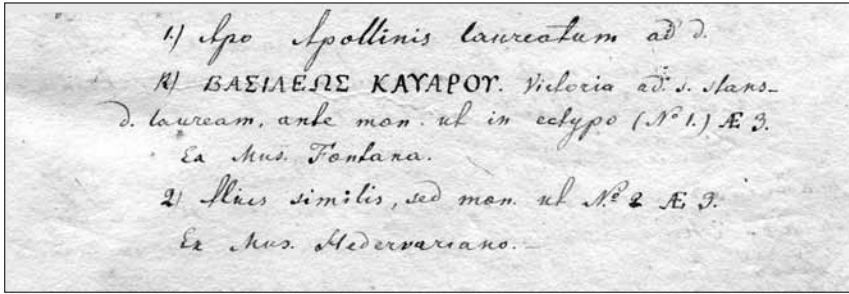 1.) Apo Apollinis laureatum ad d.
R) ΒΑΣΙΛΕΩΣ ΚΑΥΑΡΟΥ. Victoria ad. s. stans_
d. lauream, ante mon. ut in ectypo (Nº 1.) Æ 3.
Ex Mus. Fontana.
2) Alius similis, sed mon. ut Nº 2 Æ 3.
Ex Mus. Hedervariano.—